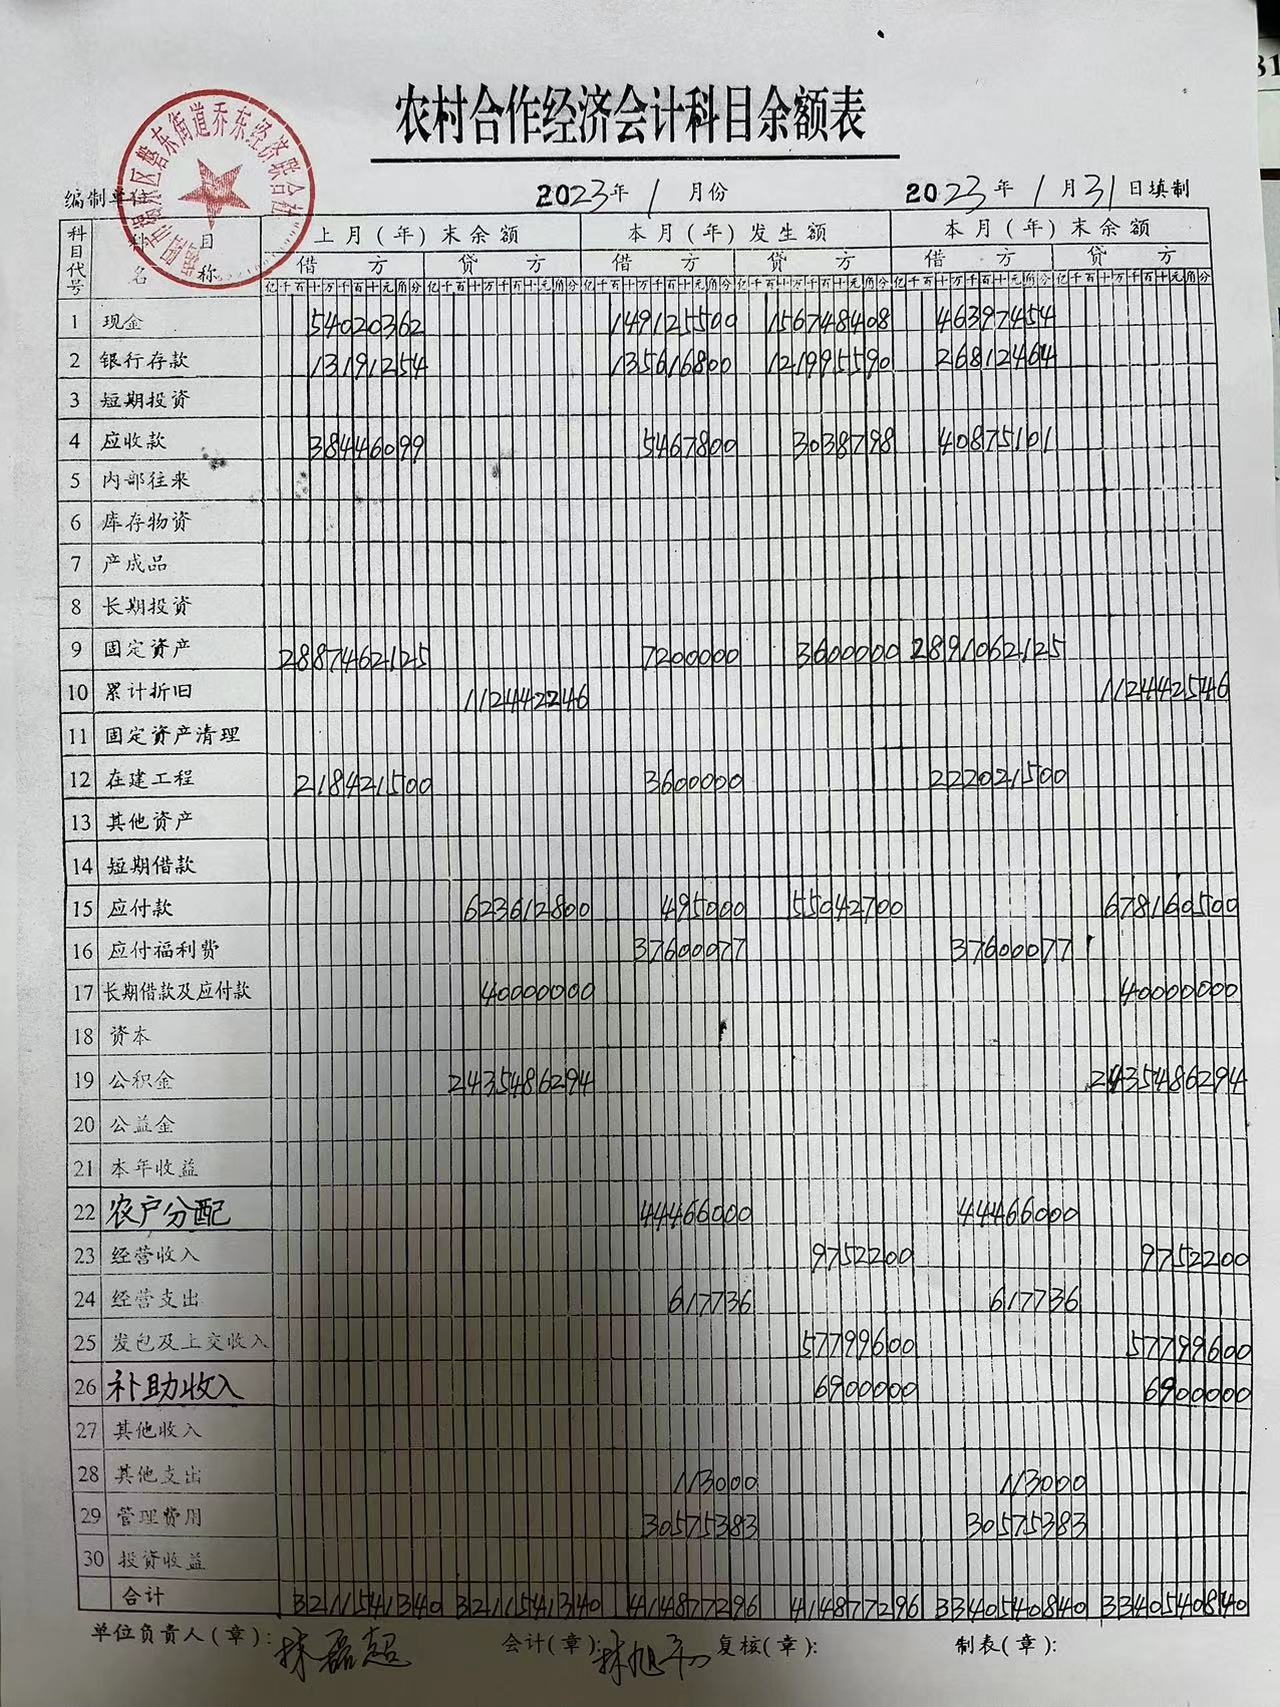 农村合作经济会计科目余额表
编制单位
区磐东街道乔东经济联合社
2023年1月份
2023年1月31日填制
科目代号 科目名称 上月(年)末余额 本月(年)发生额 本月(年)末余额
借方 贷方 借方 贷方 借方 贷方
亿千百十万千百十元角分 亿千百十万千百十元角分 亿千百十万千百十元角分 亿千百十万千百十元角分 亿千百十万千百十元角分 亿千百十万千百十元角分
1 现金 54020362 149125500 156748408 46397454
2 银行存款 13191254 135616800 121995590 26812464
3 短期投资
4 应收款 38446099 5467800 3038798 40875101
5 内部往来
6 库存物资
7 产成品
8 长期投资
9 固定资产 2887462125 7200000 3600000 2891062125
10 累计折旧 112442246 112442546
11 固定资产清理
12 在建工程 218421500 3600000 222021500
13 其他资产
14 短期借款
15 应付款 623612800 495000 55042700 678160500
16 应付福利费 37600077 37600077
17 长期借款及应付款 40000000 40000000
18 资本
19 公积金 2435486294 2435486294
20 公益金
21 本年收益
22 农户分配 44466000 44466000
23 经营收入 9752200 9752200
24 经营支出 617736 617736
25 发包及上交收入 57799600 57799600
26 补助收入 6900000 6900000
27 其他收入
28 其他支出 113000 113000
29 管理费用 30575383 30575383
30 投资收益
合计 3211541340 3211541340 414877296 414877296 3340540840 3340540840
单位负责人(章): 林磊超 会计(章): 林旭 复核(章): 制表(章):